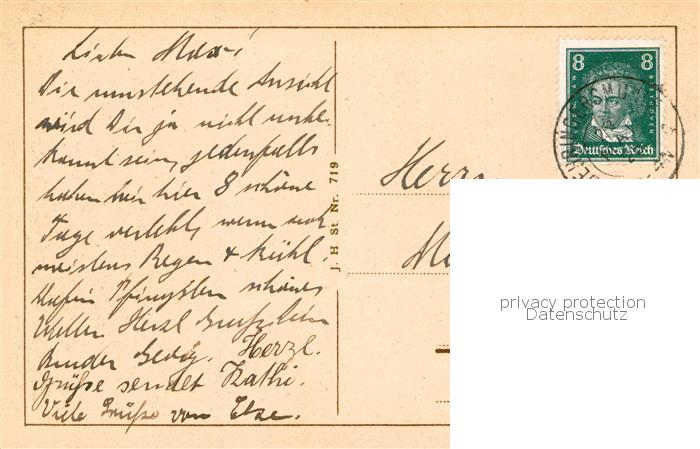 Lieber Max!
Die umstehende Ansicht
wird Dir ja nicht unbe-
kannt sein, jedenfalls
haben wir hier 8 schöne
Tage verlebt, wenn auch
meistens Regen & kühl.
Pfingsten schönes
Wetter. Herzl.
Bruder Georg. Herzl.
Grüße sendet Kathi.
Viele Grüße von Else.
J. H. St. Nr. 719
8 8
BEETHOVEN
Deutsches Reich
Herrn
privacy protection
Datenschutz